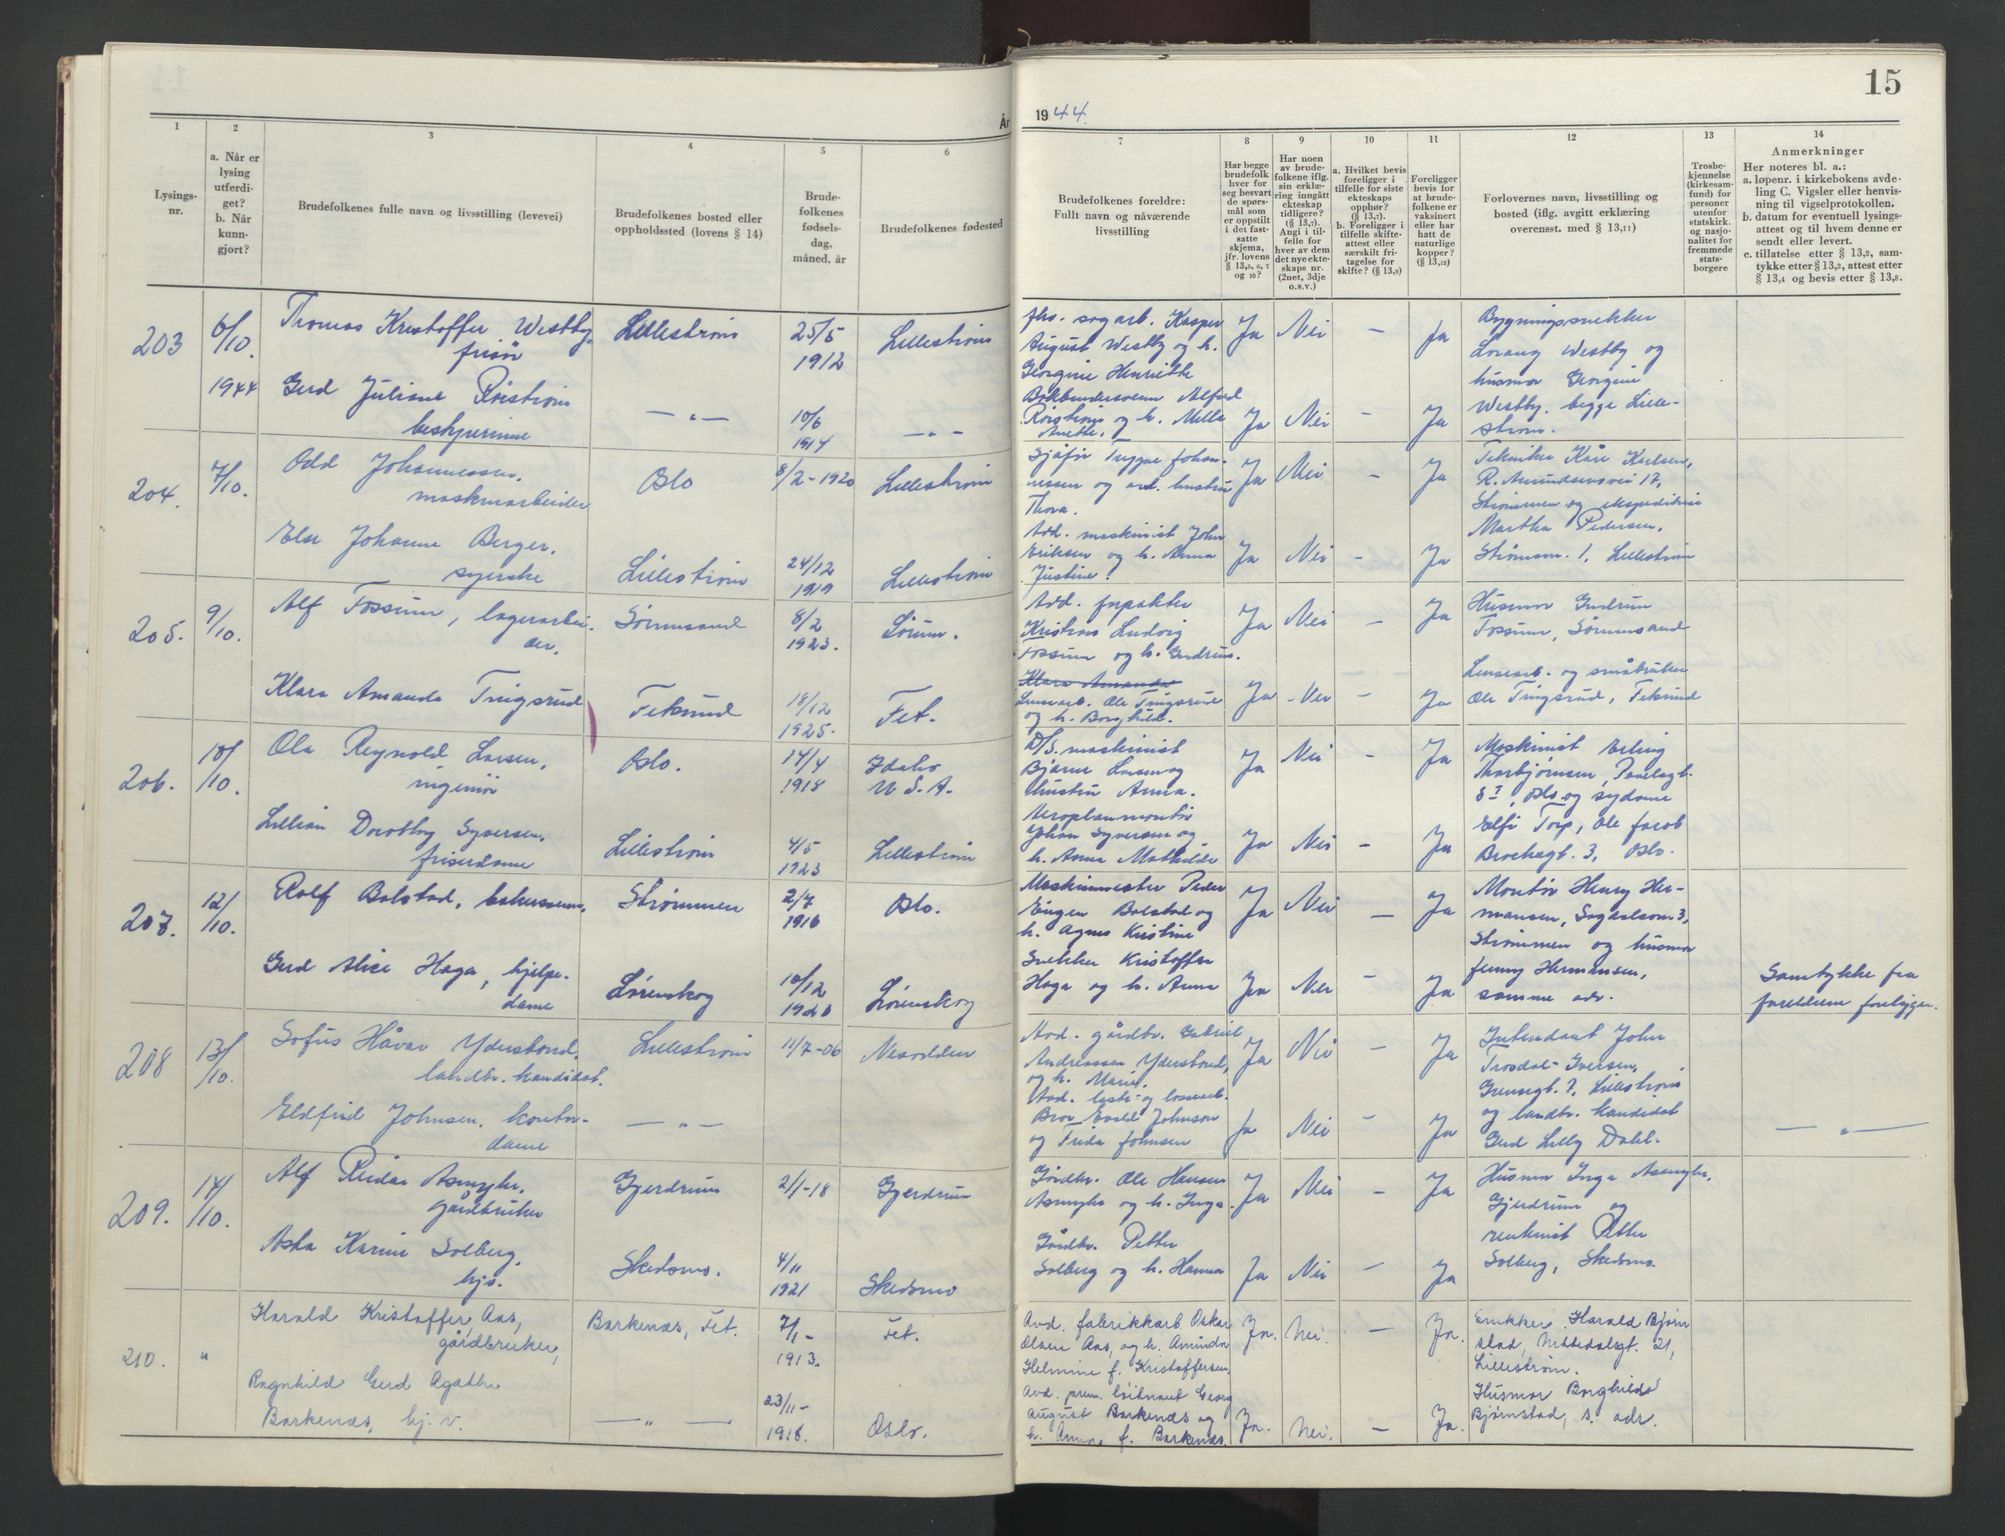 15
År 1944.
1
2
3
4
5
6
7
8
9
10
11
12
13
14
Lysings-
nr.
a. Når er
lysing
utferdi-
get?
b. Når
kunn-
gjort?
Brudefolkenes fulle navn og livsstilling (levevei)
Brudefolkenes bosted eller
oppholdssted (lovens § 14)
Brude-
folkenes
fødsels-
dag,
måned, år
Brudefolkenes fødested
Brudefolkenes foreldre:
Fullt navn og nåværende
livsstilling
Har begge
brudefolk
hver for
seg besvart
de spørs-
mål som
er oppstilt
i det fast-
satte
skjema,
jfr. lovens
§ 13,5, 6, 7
og 10?
Har noen
av brude-
folkene iflg.
sin erklæ-
ring inngått
ekteskap
tidligere?
(§ 13,7).
Angi i til-
felle for
hver av dem
det nye ekte-
skaps nr.
(2net, 3dje
o.s.v.)
a. Hvilket bevis
foreligger i
tilfelle for siste
ekteskaps
opphør?
(§ 13,7).
b. Foreligger i
tilfelle skifte-
attest eller
særskilt fri-
tagelse for
skifte? (§ 13,9)
Foreligger
bevis for
at brude-
folkene er
vaksinert
eller har
hatt de
naturlige
kopper?
(§ 13,12)
Forlovernes navn, livsstilling og
bosted (iflg. avgitt erklæring
overensst. med § 13,11)
Trosbe-
kjennelse
(kirkesam-
fund) for
personer
utenfor
statskirk.
og nasjo-
nalitet for
fremmede
stats-
borgere
Anmerkninger
Her noteres bl. a.:
a. løpenr. i kirkebokens avde-
ling C. Vigsler eller henvis-
ning til vigselprotokollen.
b. datum for eventuell lysings-
attest og til hvem denne er
sendt eller levert.
c. tillatelse etter § 13,2, sam-
tykke etter § 13,3, attest etter
§ 13,4 og bevis etter § 13,8.
203
6/10.
1944
Thomas Kristoffer Westby,
frisør
Lillestrøm
25/5
1912
Lillestrøm
Gerd Juliane Röistrøm
bestyrerinne
— " —
10/6
1914
— " —
sagarb. Kasper
August Westby og h.
Georgine Henriette
Bokbindersvenn Alfred
Röistrøm og h. Milla
Anette.
Ja Nei — Ja
Ja Nei — Ja
Bygningssnekker
Westby og
husmor Georgine
Westby, begge Lille-
strøm.
204.
7/10.
Odd Johannessen,
maskinarbeider
Oslo
8/2-1920
Lillestrøm
Else Johanne Berger,
syerske
Lillestrøm
24/12
1919
Lillestrøm
Sjåfør Trygve Johan-
nessen og avd. hustru
Thora.
Avd. maskinist John
Eriksen og h. Anna
Justine.
Ja Nei — Ja
Ja Nei — Ja
Tekniker Kåre Karlsen,
R. Amundsensvei 17,
Strømmen og ekspeditrise
Martha Pedersen,
1, Lillestrøm
205.
9/10.
Alf Fossum, lagerarbei-
der.
Sørumsand
8/2
1923.
Sørum.
Klara Amanda Tingsrud
Fetsund
18/12
1925.
Fet.
Avd. forpakter
Kristian Ludvig
Fossum og h. Gudrun.
Klara Amanda
Lensearb. Ole Tingsrud
og h. Borghild.
Ja Nei — Ja
Ja Nei — Ja
Husmor Gudrun
Fossum, Sørumsand
Lensearb. og småbruker
Ole Tingsrud, Fetsund
206.
10/10.
Ola Reynold Larsen,
ingeniør
Oslo.
14/4
1918
Idaho
U.S.A.
Lillian Dorothy Syversen,
friserdame
Lillestrøm
4/5
1923
Lillestrøm
D/S. maskinist
Bjarne Larsen og
hustru Anna.
Aeroplanmontør
Johan Syversen og
h. Anna Mathilde
Ja Nei — Ja
Ja Nei — Ja
Maskinist Erling
Thorbjørnsen,
Oslo og sydame
Elfi Torp, Ole Jacob
Brochsgt. 3, Oslo.
207.
12/10.
Rolf Bolstad,
Strømmen
2/7
1916
Oslo.
Gerd Alice Haga, hjelpe-
dame
Lørenskog
10/12
1923
Lørenskog
Maskinmester Peder
Eugen Bolstad og
h. Agnes Kristine
Snekker Kristoffer
Haga og h. Anna
Ja Nei — Ja
Ja Nei — Ja
Montør Henry Her-
mansen,
Strømmen og husmor
Jenny Hermansen,
samme adr.
Samtykke fra
foreldrene foreligger.
208
13/10.
Sofus Håvar Yderstond,
landbr. kandidat.
Lillestrøm
11/7-06
Nesodden
Eldfrid Johnsen, kontor-
dame
— " —
Avd. gårdbr. Gabriel
Andreassen Yderstond,
og h. Marie.
Avd. laste- og lossearb.
Bror Evald Johnsen
og Frida Johnsen
Ja Nei — Ja
Ja Nei — Ja
Intendant John
Trosdal-Iversen,
Lillestrøm
og landbr. kandidat
Gerd Lilly Dahl.
— " —
209.
14/10.
Alf Reidar Asmyhr,
gårdbruker
Gjerdrum
2/1-18
Gjerdrum
Asta Karine Solberg,
hjs.
Skedsmo.
4/11
1921
Skedsmo
Gårdbr. Ole Hansen
Asmyhr og h. Inga.
Gårdbr. Petter
Solberg og h. Hanna
Ja Nei — Ja
Ja Nei — Ja
Husmor Inga Asmyhr,
Gjerdrum og
Petter
Solberg, Skedsmo.
210.
"
Harald Kristoffer Aas,
gårdbruker,
Barkenæs, Fet.
7/1-
1913.
Fet.
Ragnhild Gerd Agathe
Barkenæs, hj. v.
— " —
23/11-
1918.
Oslo.
Avd. fabrikkarb Oskar
Olsen Aas, og h. Aminda
Helmine f. Kristoffersen,
Avd. prem. løitnant Georg
August Barkenæs og
h. Anna f. Barkenæs.
Ja. Nei. — Ja.
Ja. Nei. — Ja.
Snekker Harald Bjørn
stad, Nittedalsgt. 21,
Lillestrøm.
Husmor Borghild
Bjørnstad, s. adr.